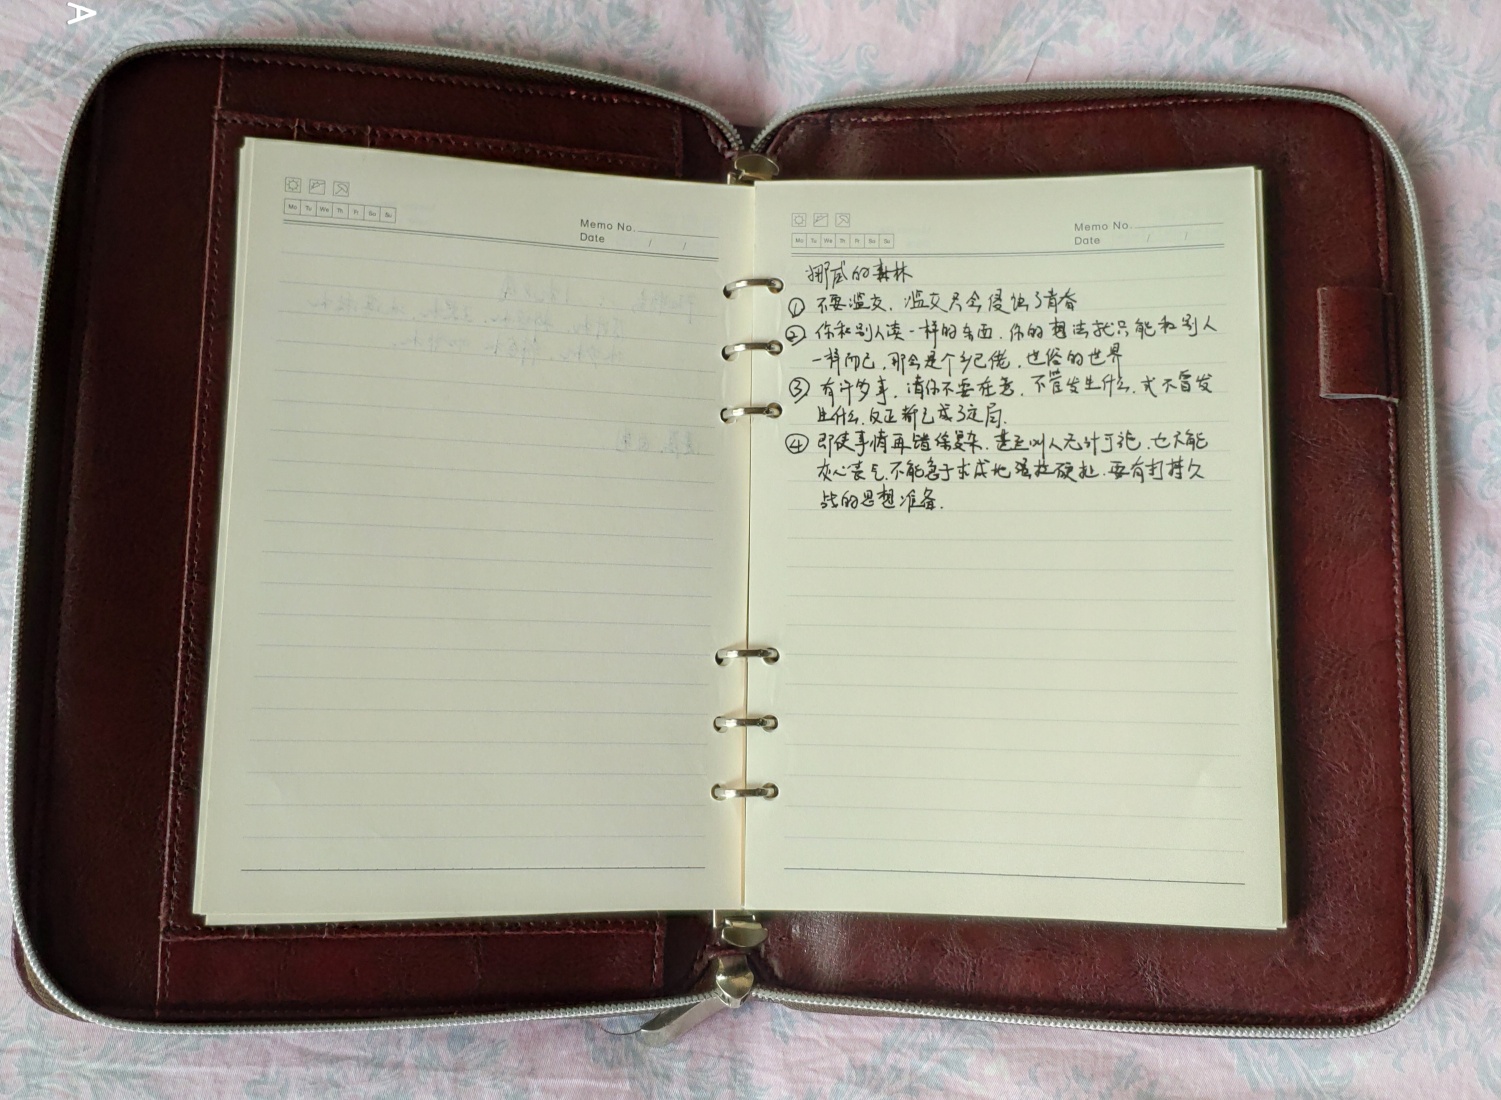 Mo Tu We Th Fr Sa Su
Memo No.
Date / /
Mo Tu We Th Fr Sa Su
Memo No.
Date / /
挪威的森林
① 不要滥交、滥交只会侵蚀了青春
② 你和别人读一样的东西、你的想法就只能和别人
一样而已、那会是个乡巴佬、世俗的世界
③ 有许多事、请你不要在意、不管发生什么、或不曾发
生什么、反正都已成了定局.
④ 即使事情再错综复杂、甚至叫人无计可施、也不能
灰心丧气、不能急于求成地强拉硬扯、要有打持久
战的思想准备.
A